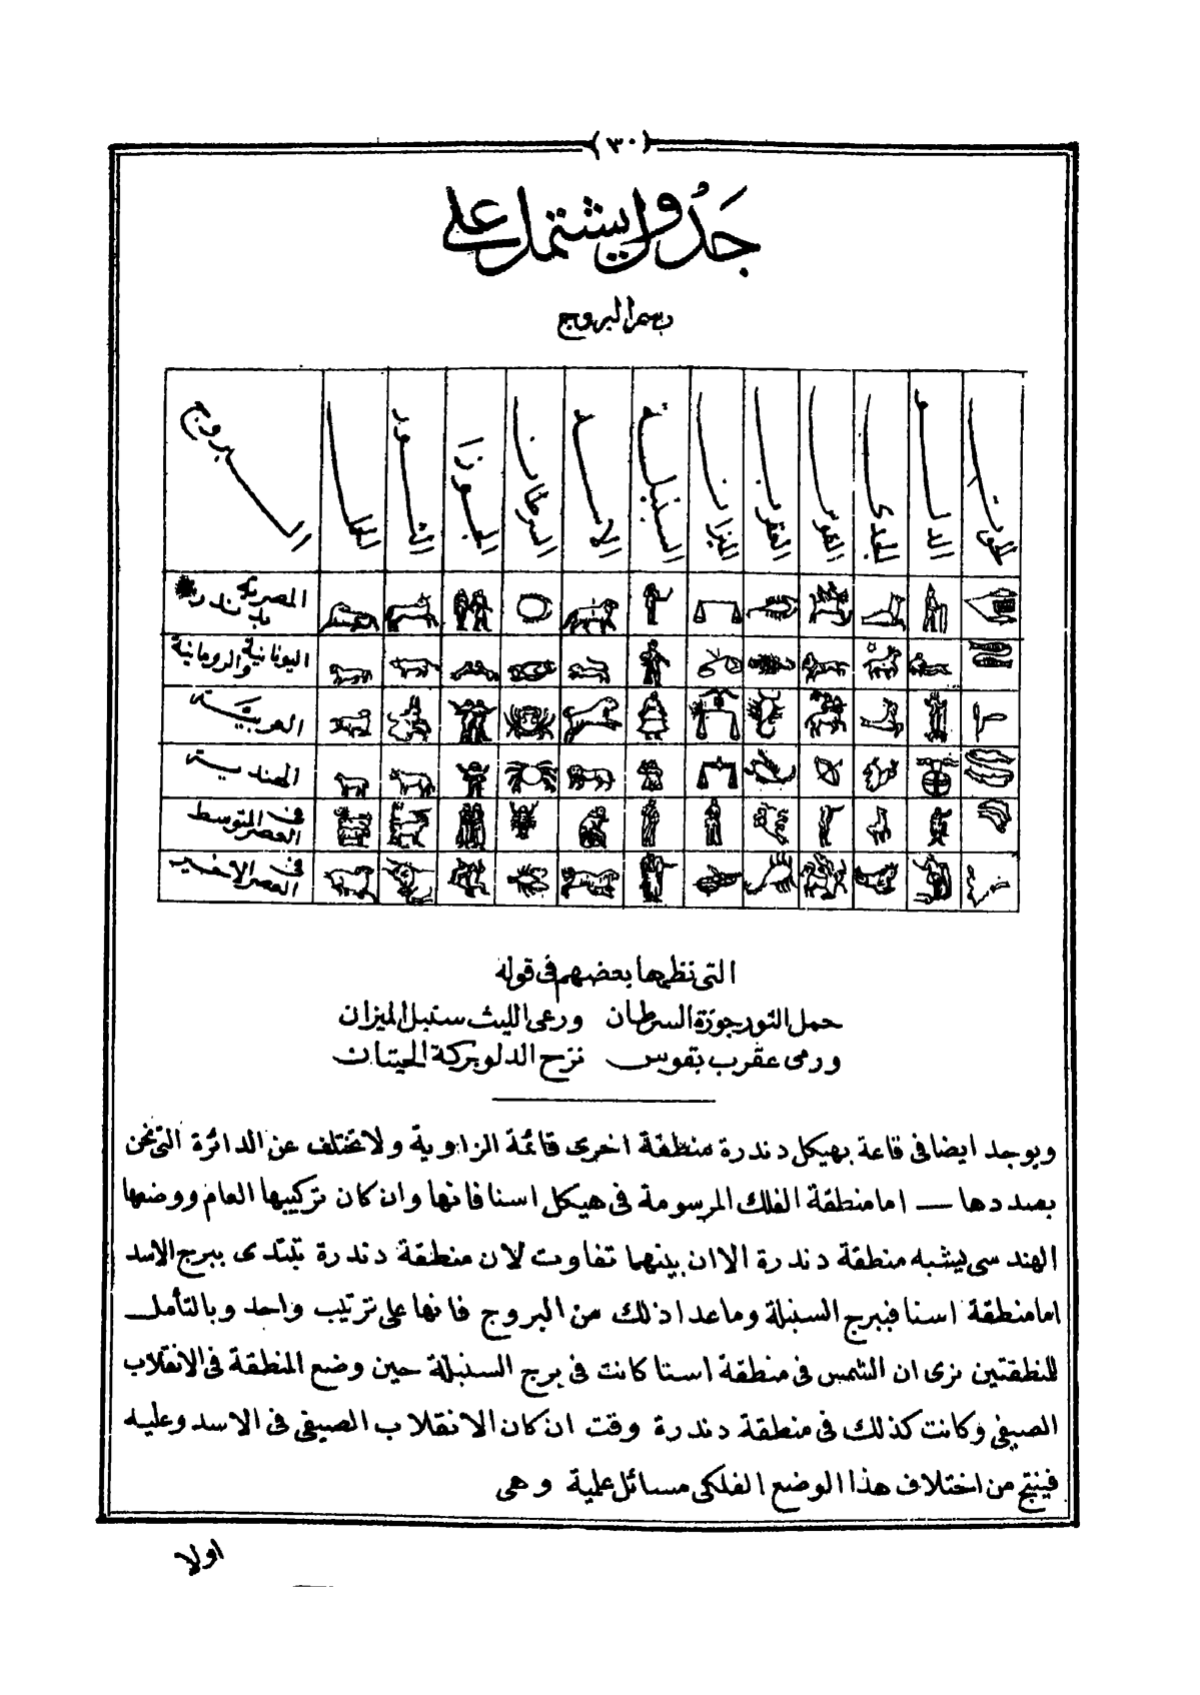 (٣٠)
جَدْول يشتمل على
رسم البروج
البروج
الحمل
الثور
الجوزا
السرطان
الاسد
السنبلة
الميزان
العقرب
القوس
الجدى
الدلو
الحوت
المصرية بدندره
اليونانية والرومانية
العربيَّة
الهندية
فى العصر المتوسط
فى العصر الاخير
التى نظمها بعضهم فى قوله
حمل الثور جوزة السرطان ورعى الليث سنبل الميزان
ورمى عقرب بقوس نزح الدلو بركة الحيتان
ويوجد ايضا فى قاعة بهيكل دندرة منطقة اخرى قائمة الزاوية ولا تختلف عن الدائرة التى نحن
بصددها — اما منطقة الفلك المرسومة فى هيكل اسنا فانها وان كان تركيبها العام ووضعها
الهندسى يشبه منطقة دندرة الا ان بينهما تفاوت لان منطقة دندرة تبتدى ببرج الاسد
اما منطقة اسنا فببرج السنبلة وما عدا ذلك من البروج فانها على ترتيب واحد وبالتأمل
للنطقتين نرى ان الشمس فى منطقة اسنا كانت فى برج السنبلة حين وضع المنطقة فى الانقلاب
الصيفى وكانت كذلك فى منطقة دندرة وقت ان كان الانقلاب الصيفى فى الاسد وعليه
فينتج من اختلاف هذا الوضع الفلكى مسائل علمية وهى
اولا